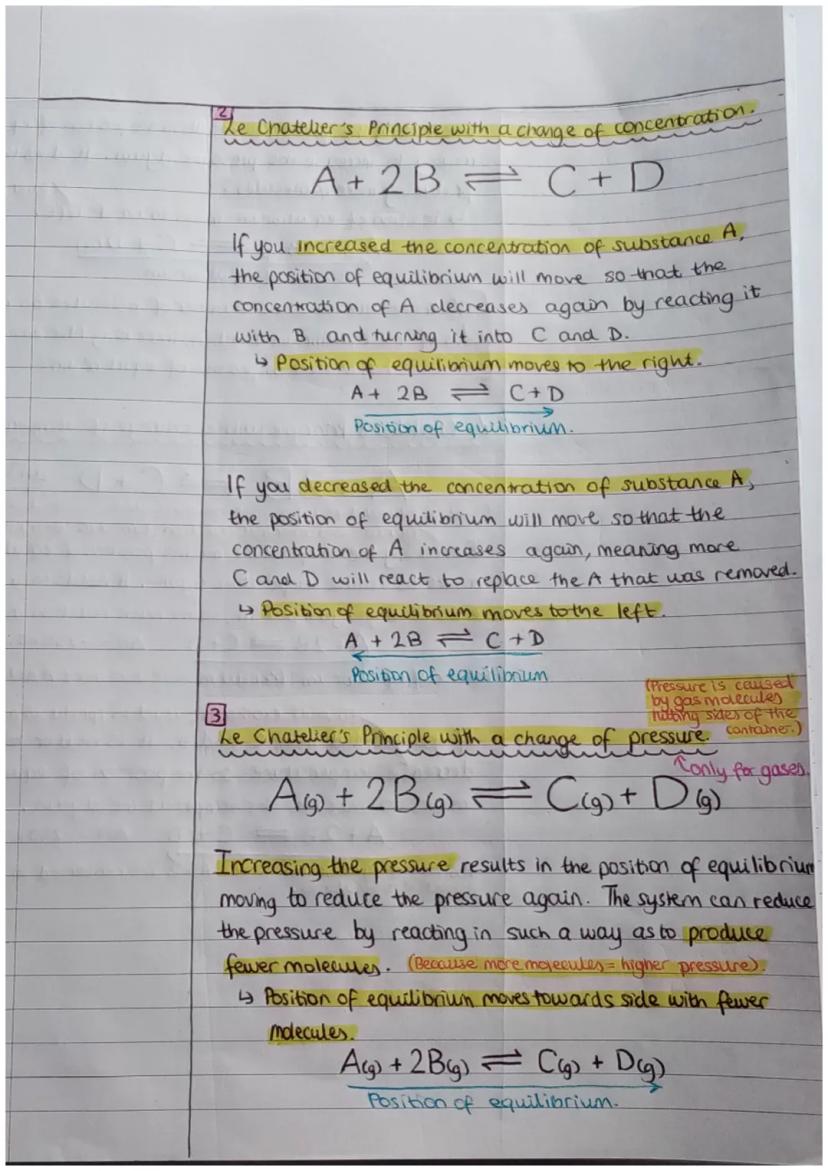 2
Le Chatelier's Principle with a change of concentration.
A + 2B ⇌ C + D
If you increased the concentration of substance A,
the position of equilibrium will move so that the
concentration of A decreases again by reacting it
with B and turning it into C and D.
↳ Position of equilibrium moves to the right.
A + 2B ⇌ C + D
Position of equilibrium.
If you decreased the concentration of substance A,
the position of equilibrium will move so that the
concentration of A increases again, meaning more
C and D will react to replace the A that was removed.
↳ Position of equilibrium moves to the left.
A + 2B ⇌ C + D
Position of equilibrium
(Pressure is caused
by gas molecules
hitting sides of the
container.)
3
Le Chatelier's Principle with a change of pressure.
↑only for gases.
A(g) + 2B(g) ⇌ C(g) + D(g)
Increasing the pressure results in the position of equilibrium
moving to reduce the pressure again. The system can reduce
the pressure by reacting in such a way as to produce
fewer molecules. (Because more molecules = higher pressure).
↳ Position of equilibrium moves towards side with fewer
molecules.
A(g) + 2B(g) ⇌ C(g) + D(g)
Position of equilibrium.